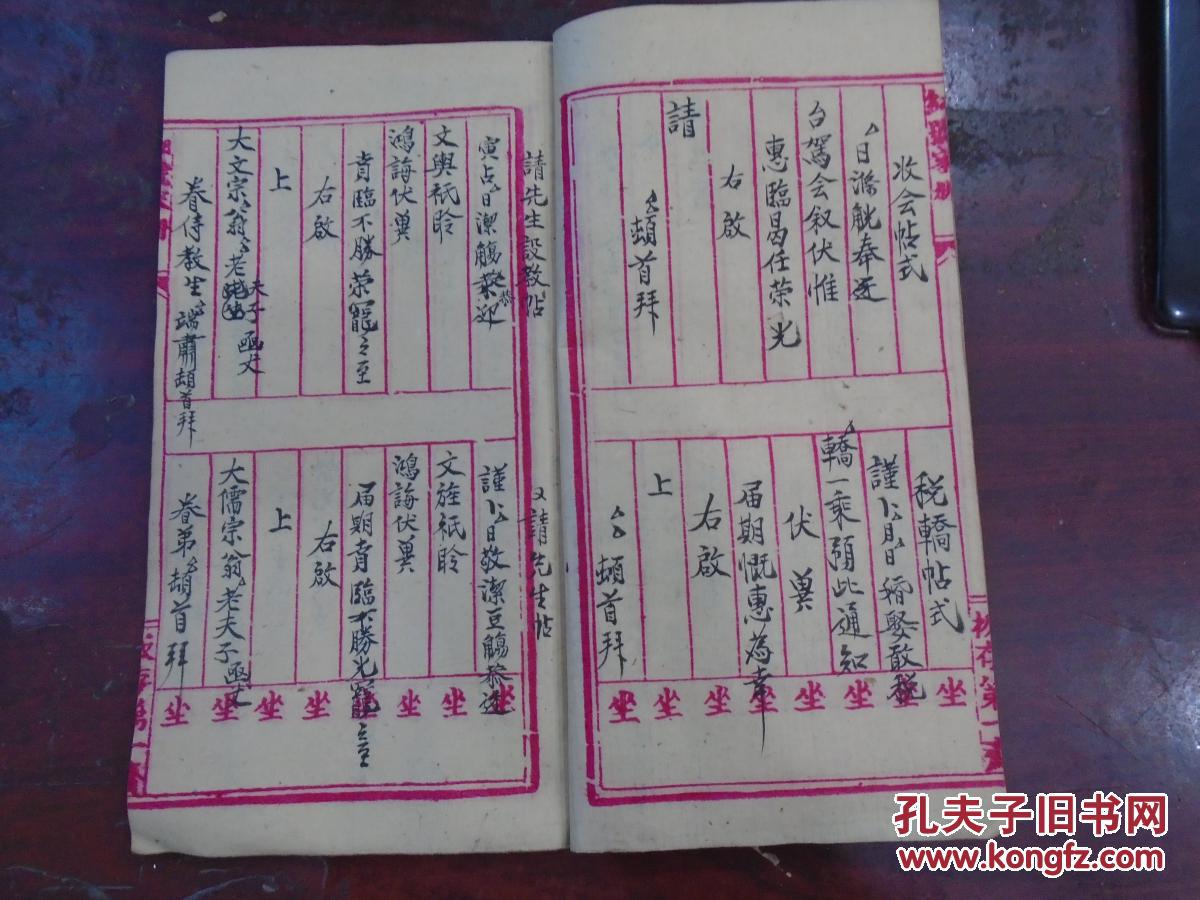 收会帖式
𠆢日滌觥奉迓
台駕会叙伏惟
惠臨曷任荣光
右啟
請
頓首拜
税轎帖式
謹卜𠆢月𠆢日婚娶敢税
轎一乘預此通知
伏兾
届期慨惠為幸
右啟
上
頓首拜
坐 坐 坐 坐 坐 坐 坐 坐
請先生設教帖
寅占𠆢日潔觴恭迎
文輿祇聆
鴻誨伏兾
賁臨不勝荣寵之至
右啟
上
大文宗𠆢翁𠆢老夫子函丈
眷侍教生𠆢端肅頓首拜
又請先生帖
謹卜𠆢日敬潔豆觴恭迓
文旌祇聆
鴻誨伏兾
届期賁臨不勝光寵之至
右啟
上
大儒宗𠆢翁老夫子函丈
眷弟𠆢頓首拜
坐 坐 坐 坐 坐 坐 坐 坐
孔夫子旧书网
www.kongfz.com